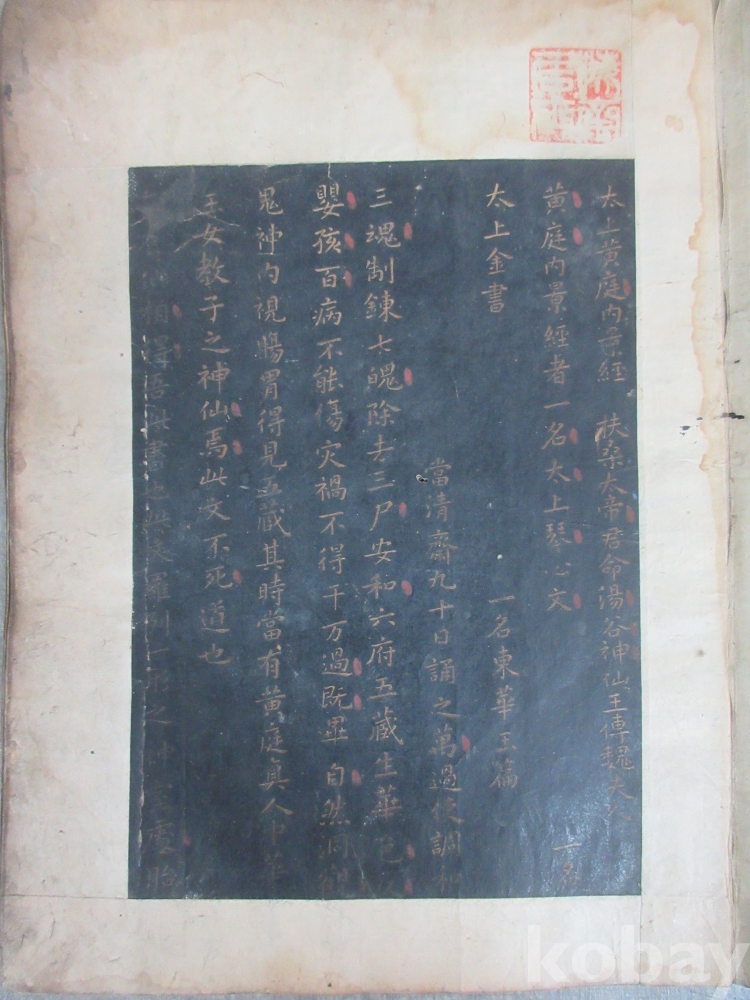 太上黃庭內景經 扶桑太帝君命湯谷神仙王傳魏夫人
黃庭內景經者一名太上琴心文 一名
太上金書 一名東華玉篇
當清齋九十日誦之萬過使調和
三魂制鍊七魄除去三尸安和六府五藏生華色
嬰孩百病不能傷灾禍不得干万過既畢自然洞
鬼神內視腸胃得見五藏其時當有黃庭真人中華
玉女教子之神仙焉此文不死道也
相得吾此書之 羅列一形之神 胎
kobay